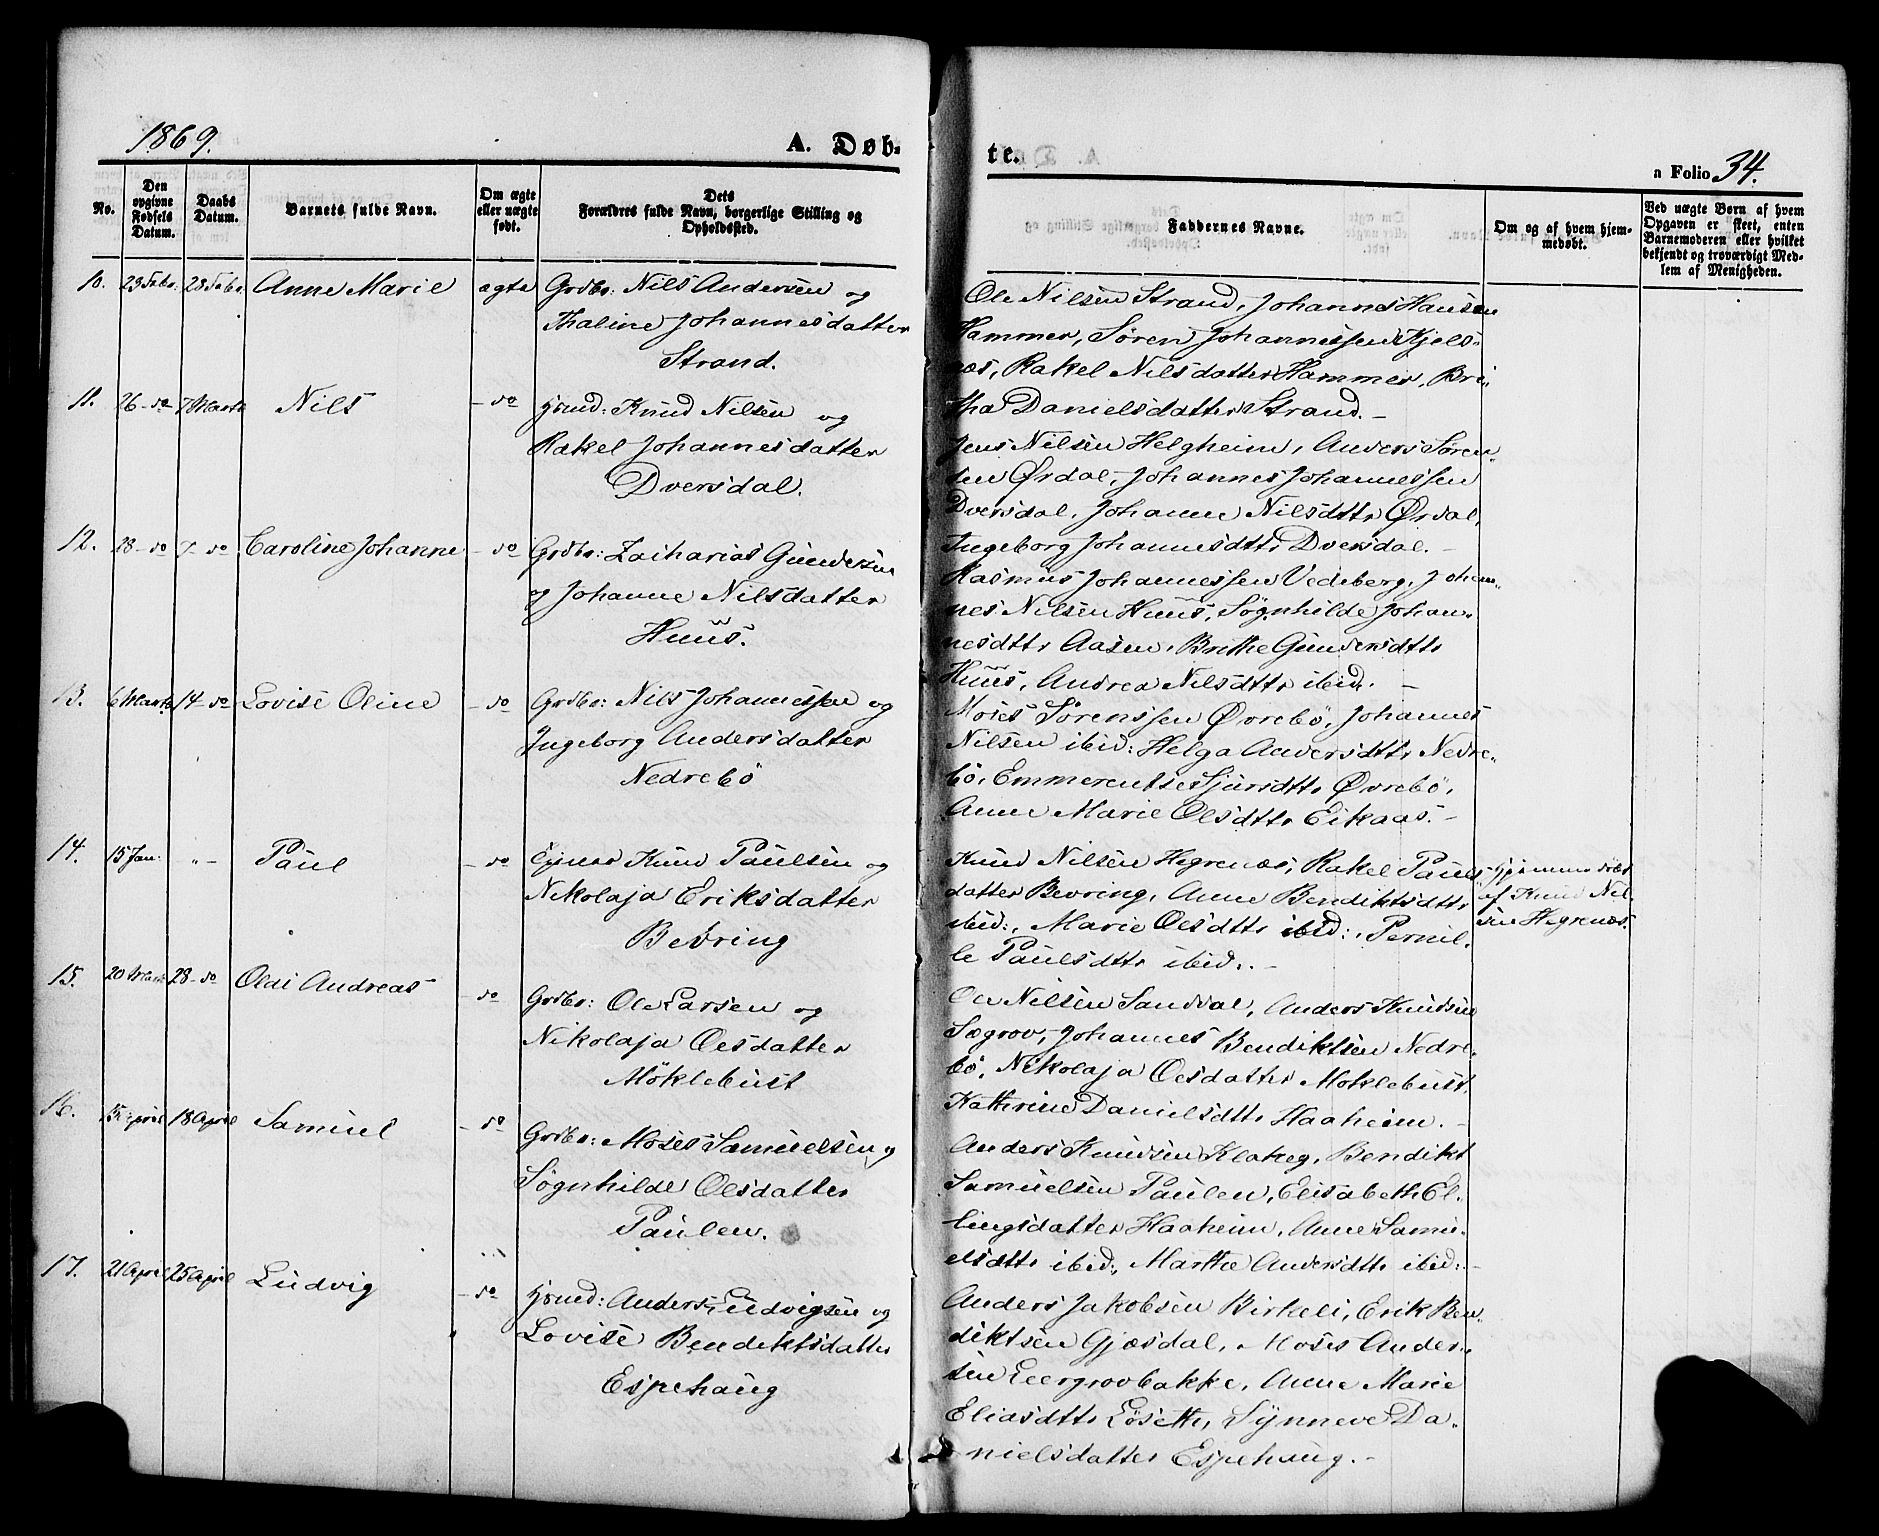 1869.
A. Døb-
te.
Folio 34.
No.
Den opgivne Fødsels Datum.
Daabs Datum.
Barnets fulde Navn.
Om ægte eller uægte født.
Dets Forældres fulde Navn, borgerlige Stilling og Opholdssted.
Faddernes Navne.
Om og af hvem hjemmedøbt.
Ved uægte Børn af hvem
Opgaven er skeet, enten
Barnemoderen eller hvilket
bekjendt og troværdigt Med-
lem af Menigheden.
10. 23 Febr: 28 Febr: Anne Marie ægte Grdbr: Nils Andersen og
Thaline Johannesdatter
Strand.
Ole Nilsen Strand, Johannes Hansen
Hammer, Søren Johannessen Kjels-
næs, Rakel Nilsdatter Hammer, Bri-
tha Danielsdatter Strand.-
11. 26 - do 7 Marts Nils - do Hsmd: Knud Nilsen og
Rakel Johannesdatter
Dversdal.
Jens Nilsen Helgheim, Anders Søren-
sen Ørdal, Johannes Johannessen
Dversdal, Johanne Nilsdttr Ørdal,
Ingeborg Johannesdttr Dversdal.-
12. 28 - do 7 - do Caroline Johanne - do Grdbr: Zacharias Gundersen
og Johanne Nilsdatter
Huus.
Rasmus Johannessen Vedeberg, Johan-
nes Nilsen Huus, Søgnhilde Johan-
nesdttr Aasen, Brithe Gundersdttr
Huus, Andrea Nilsdttr ibid. -
13. 6 Marts 14 - do Lovise Oline - do Grdbr: Nils Johannessen og
Ingeborg Andersdatter
Nedrebö
Moses Sørenssen Øvrebö, Johannes
Nilsen ibid: Helga Andersdttr Nedre-
bö, Emmerentse Sjursdttr Øvrebö,
Anne Marie Olsdttr Eikaas.-
14. 15 Jan: " - Paul - do Knud Paulsen og
Nikolaja Eriksdatter
Bevring
Knud Nilsen Hegrenæs, Rakel Pauls-
datter Bevring, Anne Bendiktsdttr
ibid:, Marie Olsdttr ibid:, Pernil-
le Paulsdttr ibid..-
Hjemmedöbt
af Knud Nil-
sen Hegrenæs.
15. 20 Marts 28 - do Olai Andreas - do Grdbr: Ole Larsen og
Nikolaja Olsdatter
Möklebust
Ole Nilsen Sandal, Anders Knudsen
Sægrov, Johannes Bendiktsen Nedre-
bö, Nikolaja Olsdatter Möklebust,
Kathrine Danielsdttr Haaheim.-
16. April 18 April Samuel - do Grdbr: Moses Samuelsen og
Søgnhilde Olsdatter
Paulen.
Anders Knudsen Klakeg, Bendikt
Samuelsen Paulen, Elisabeth El-
lingsdatter Haaheim, Anne Samu-
elsdttr ibid:, Marthe Andersdttr ibid:-
17. 21 April 25 April Ludvig - do Hsmd: Anders Ludvigsen og
Lovise Bendiktsdatter
Espehaug
Anders Jakobsen Birkeli, Erik Ben-
diktsen Gjæsdal, Moses Ander-
sen Leergrovbakke, Anne Marie
Eliasdttr Løset, Synneve Da-
nielsdatter Espehaug.-